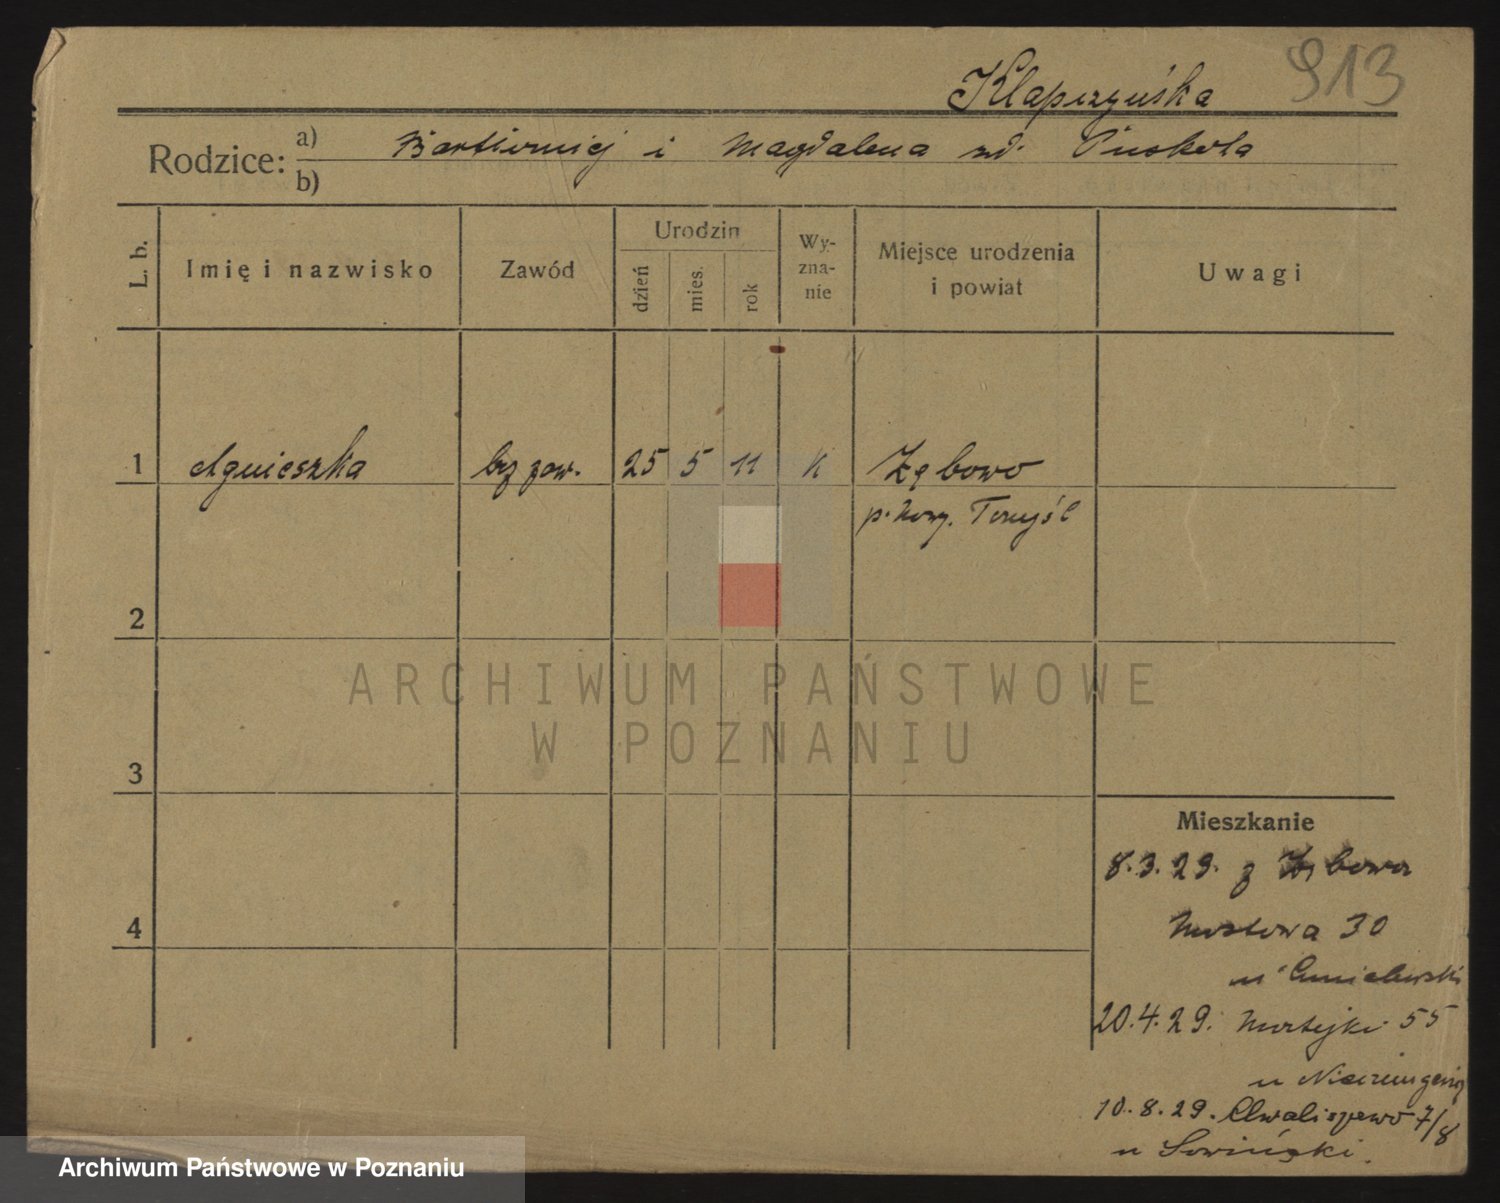 913
Klapczyńska
Rodzice: a) Bartłomiej i Magdalena zd.
b)
L. b.
Imię i nazwisko
Zawód
Urodzin
dzień
mies.
rok
Wy-
zna-
nie
Miejsce urodzenia
i powiat
Uwagi
1 Agnieszka bez zaw. 25 5 11 K Zębowo
p. Nowy Tomyśl
2
3
4
ARCHIWUM PAŃSTWOWE
W POZNANIU
Mieszkanie
8.3.29. z Zębowa
Mostowa 30
u Chmielewski
20.4.29. 55
u
10.8.29. Chwaliszewo 7/8
u Sowiński.
Archiwum Państwowe w Poznaniu